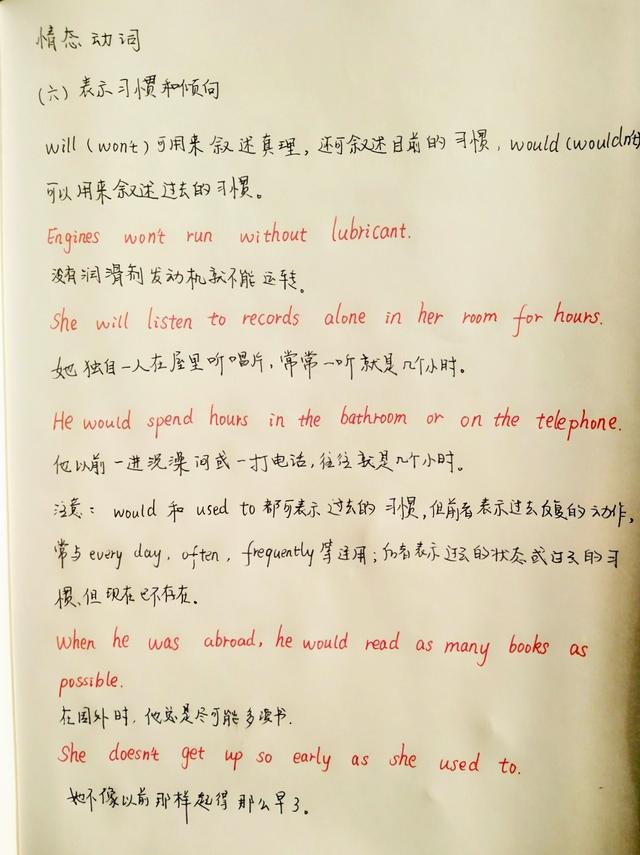 情态动词
(六) 表示习惯和倾向
will (won't) 可用来叙述真理，还可叙述目前的习惯，would (wouldn't)
可以用来叙述过去的习惯。
Engines won't run without lubricant.
没有润滑剂发动机就不能运转。
She will listen to records alone in her room for hours.
她独自一人在屋里听唱片，常常一听就是几个小时。
He would spend hours in the bathroom or on the telephone.
他以前一进洗澡间或一打电话，往往就是几个小时。
注意：would 和 used to 都可表示过去的习惯，但前者表示过去反复的动作，
常与 every day，often，frequently 等连用；后者表示过去的状态或过去的习
惯，但现在已不存在。
When he was abroad, he would read as many books as
possible.
在国外时，他总是尽可能多读书.
She doesn't get up so early as she used to.
她不像以前那样起得那么早了。